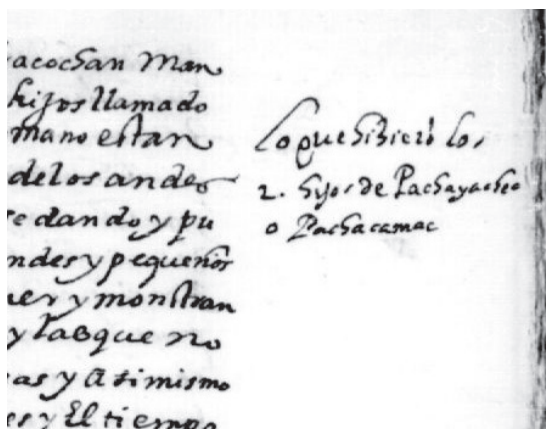 acochan Man
hijos llamado
mano estan
delos andes
se dando y pu
ndes y pequeños
uer y monstran
y las que no
as y a simismo
es y El tiempo
Lo que hiziero los
2. hijos de Pachayachec
o Pachacamac